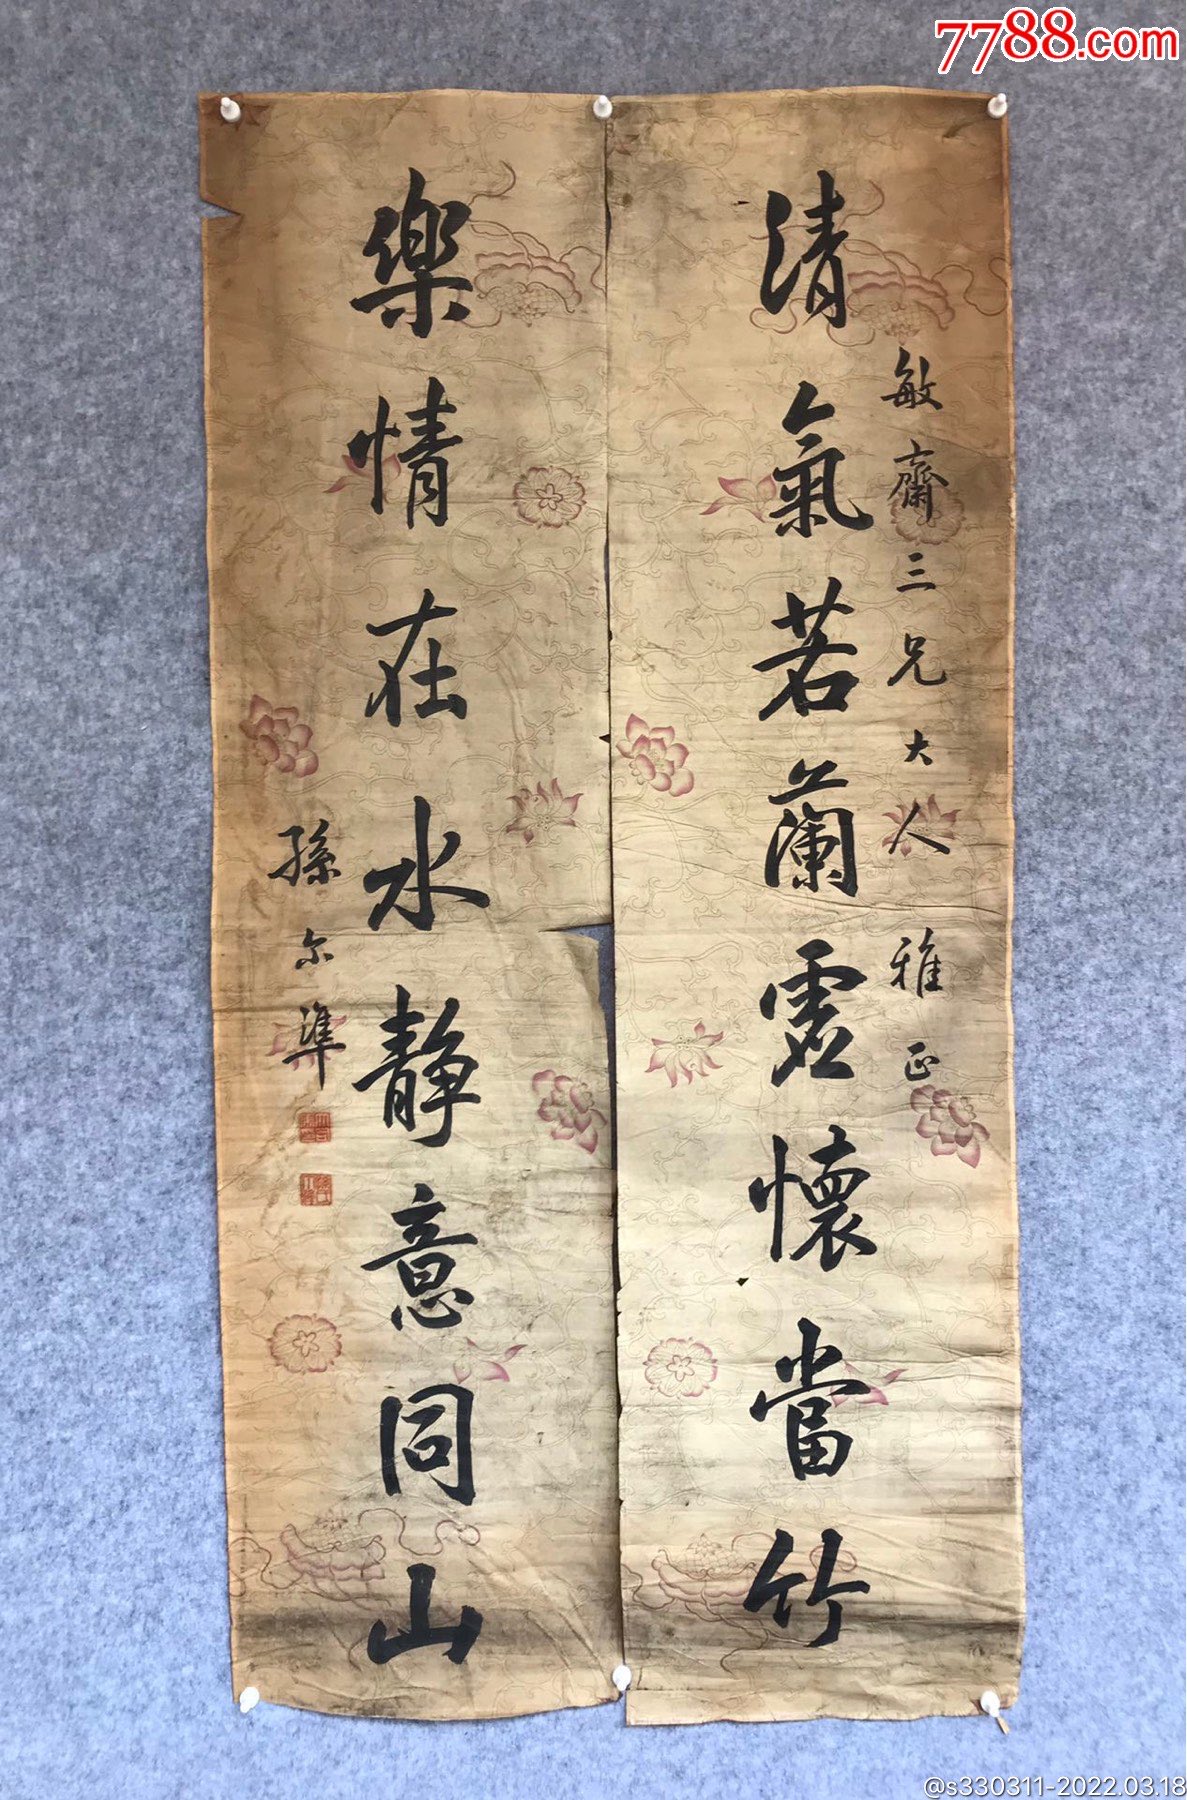 7788.com
敏齋三兄大人雅正
清氣若蘭虛懷當竹
樂情在水静意同山
孫尔準
@s330311-2022.03.18